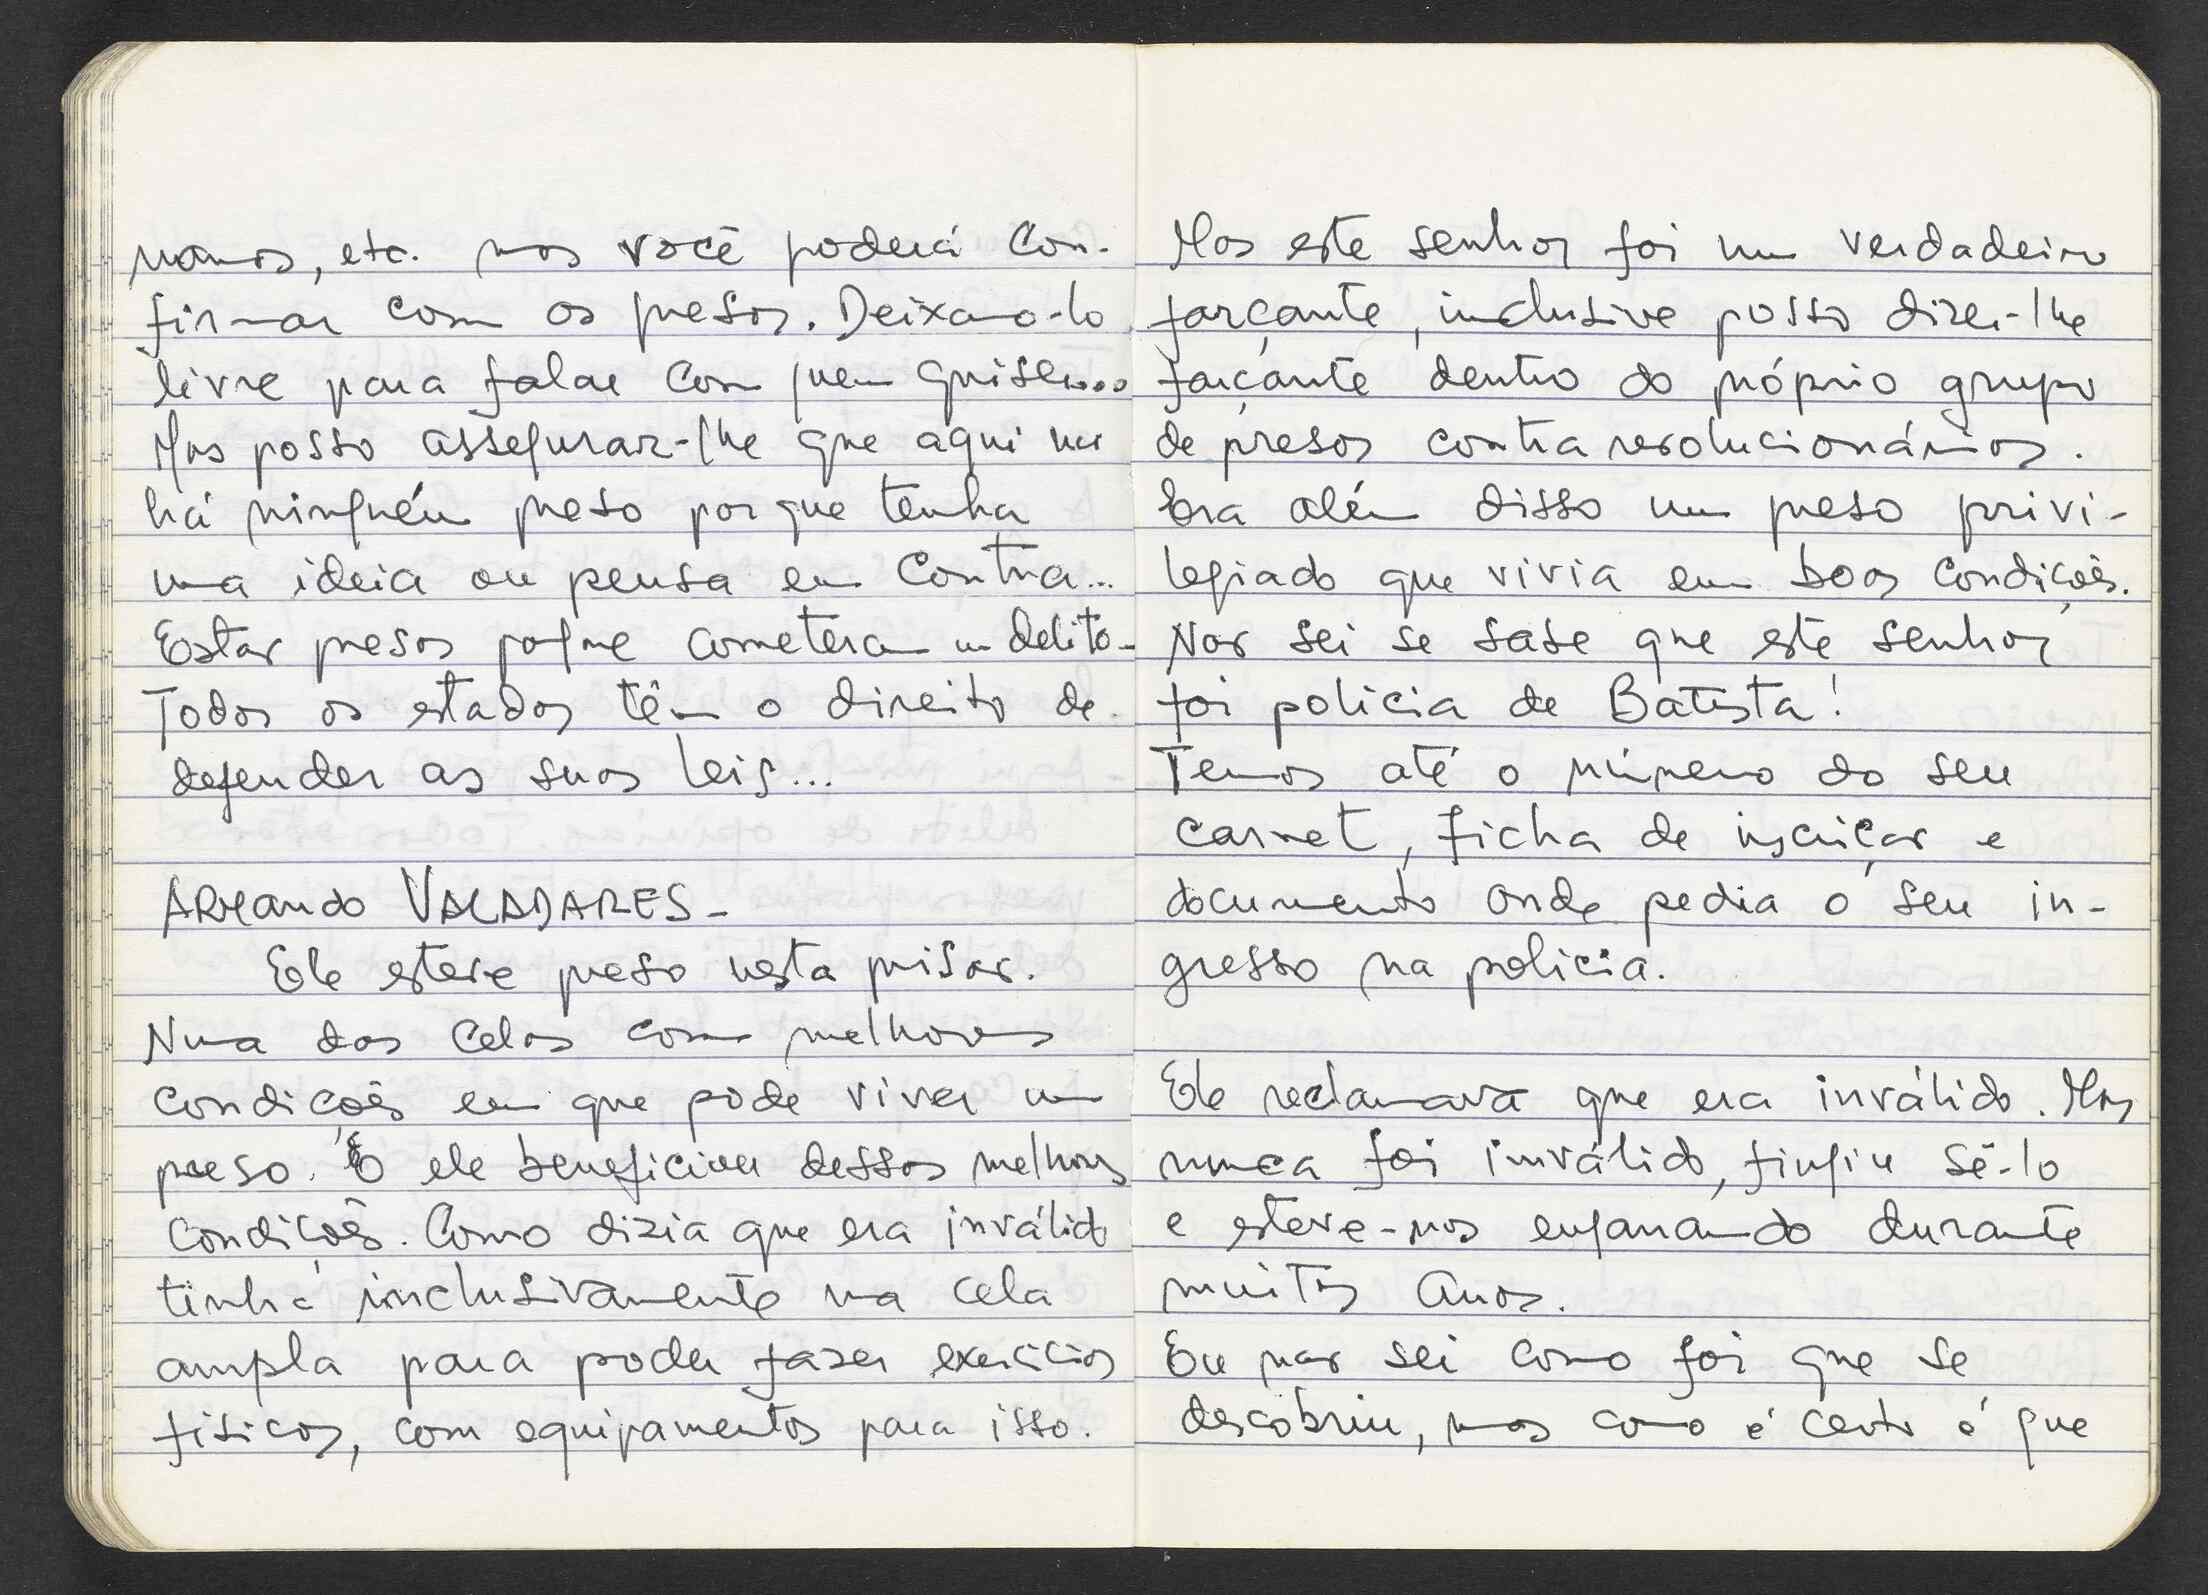 manos, etc. mas você poderá con-
firmar com os presos. Deixamo-lo
livre para falar com quem quiser...
Mas posso assegurar-lhe que aqui não
há ninguém preso porque tenha
uma ideia ou pensa em contra...
Estão presos porque cometeram um delito-
Todos os estados têm o direito de
defender as suas leis...
Armando VALADARES-
Ele esteve preso nesta prisão.
Numa das celas com melhores
condições em que pode viver um
preso. E ele beneficiou dessas melhores
condições. Como dizia que era inválido
tinha inclusivamente uma cela
ampla para poder fazer exercícios
físicos, com equipamentos para isso.
Mas este senhor foi um verdadeiro
farçante, inclusive posso dizer-lhe
farçante dentro do próprio grupo
de presos contra revolucionários.
Era além disso um preso privi-
legiado que vivia em boas condições.
Não sei se sabe que este senhor
foi policia de Batista!
Temos até o número do seu
carnet, ficha de inscrição e
documento onde pedia o seu in-
gresso na policia.
Ele reclamava que era inválido. Mas
nunca foi inválido, fingiu sê-lo
e esteve-nos enganando durante
muitos anos.
Eu não sei como foi que se
descobriu, mas como é certo é que